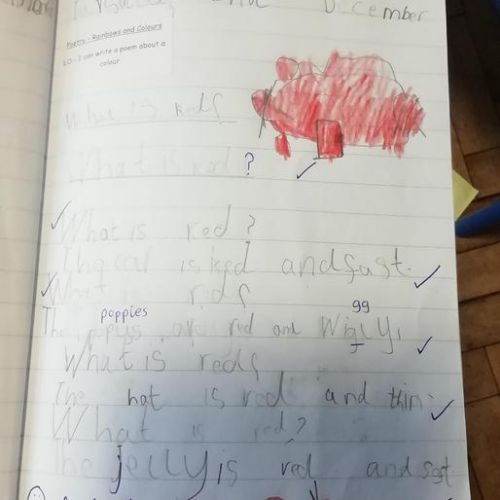 December
Poetry - Rainbows and Colours
LO - I can write a poem about a
colour.
What is red?
What is red?
What is red?
The car is red and fast.
What red?
poppies gg
The popys are red and Wigly,
What is red?
The hat is red and thin.
What is red?
The jelly is red and soft